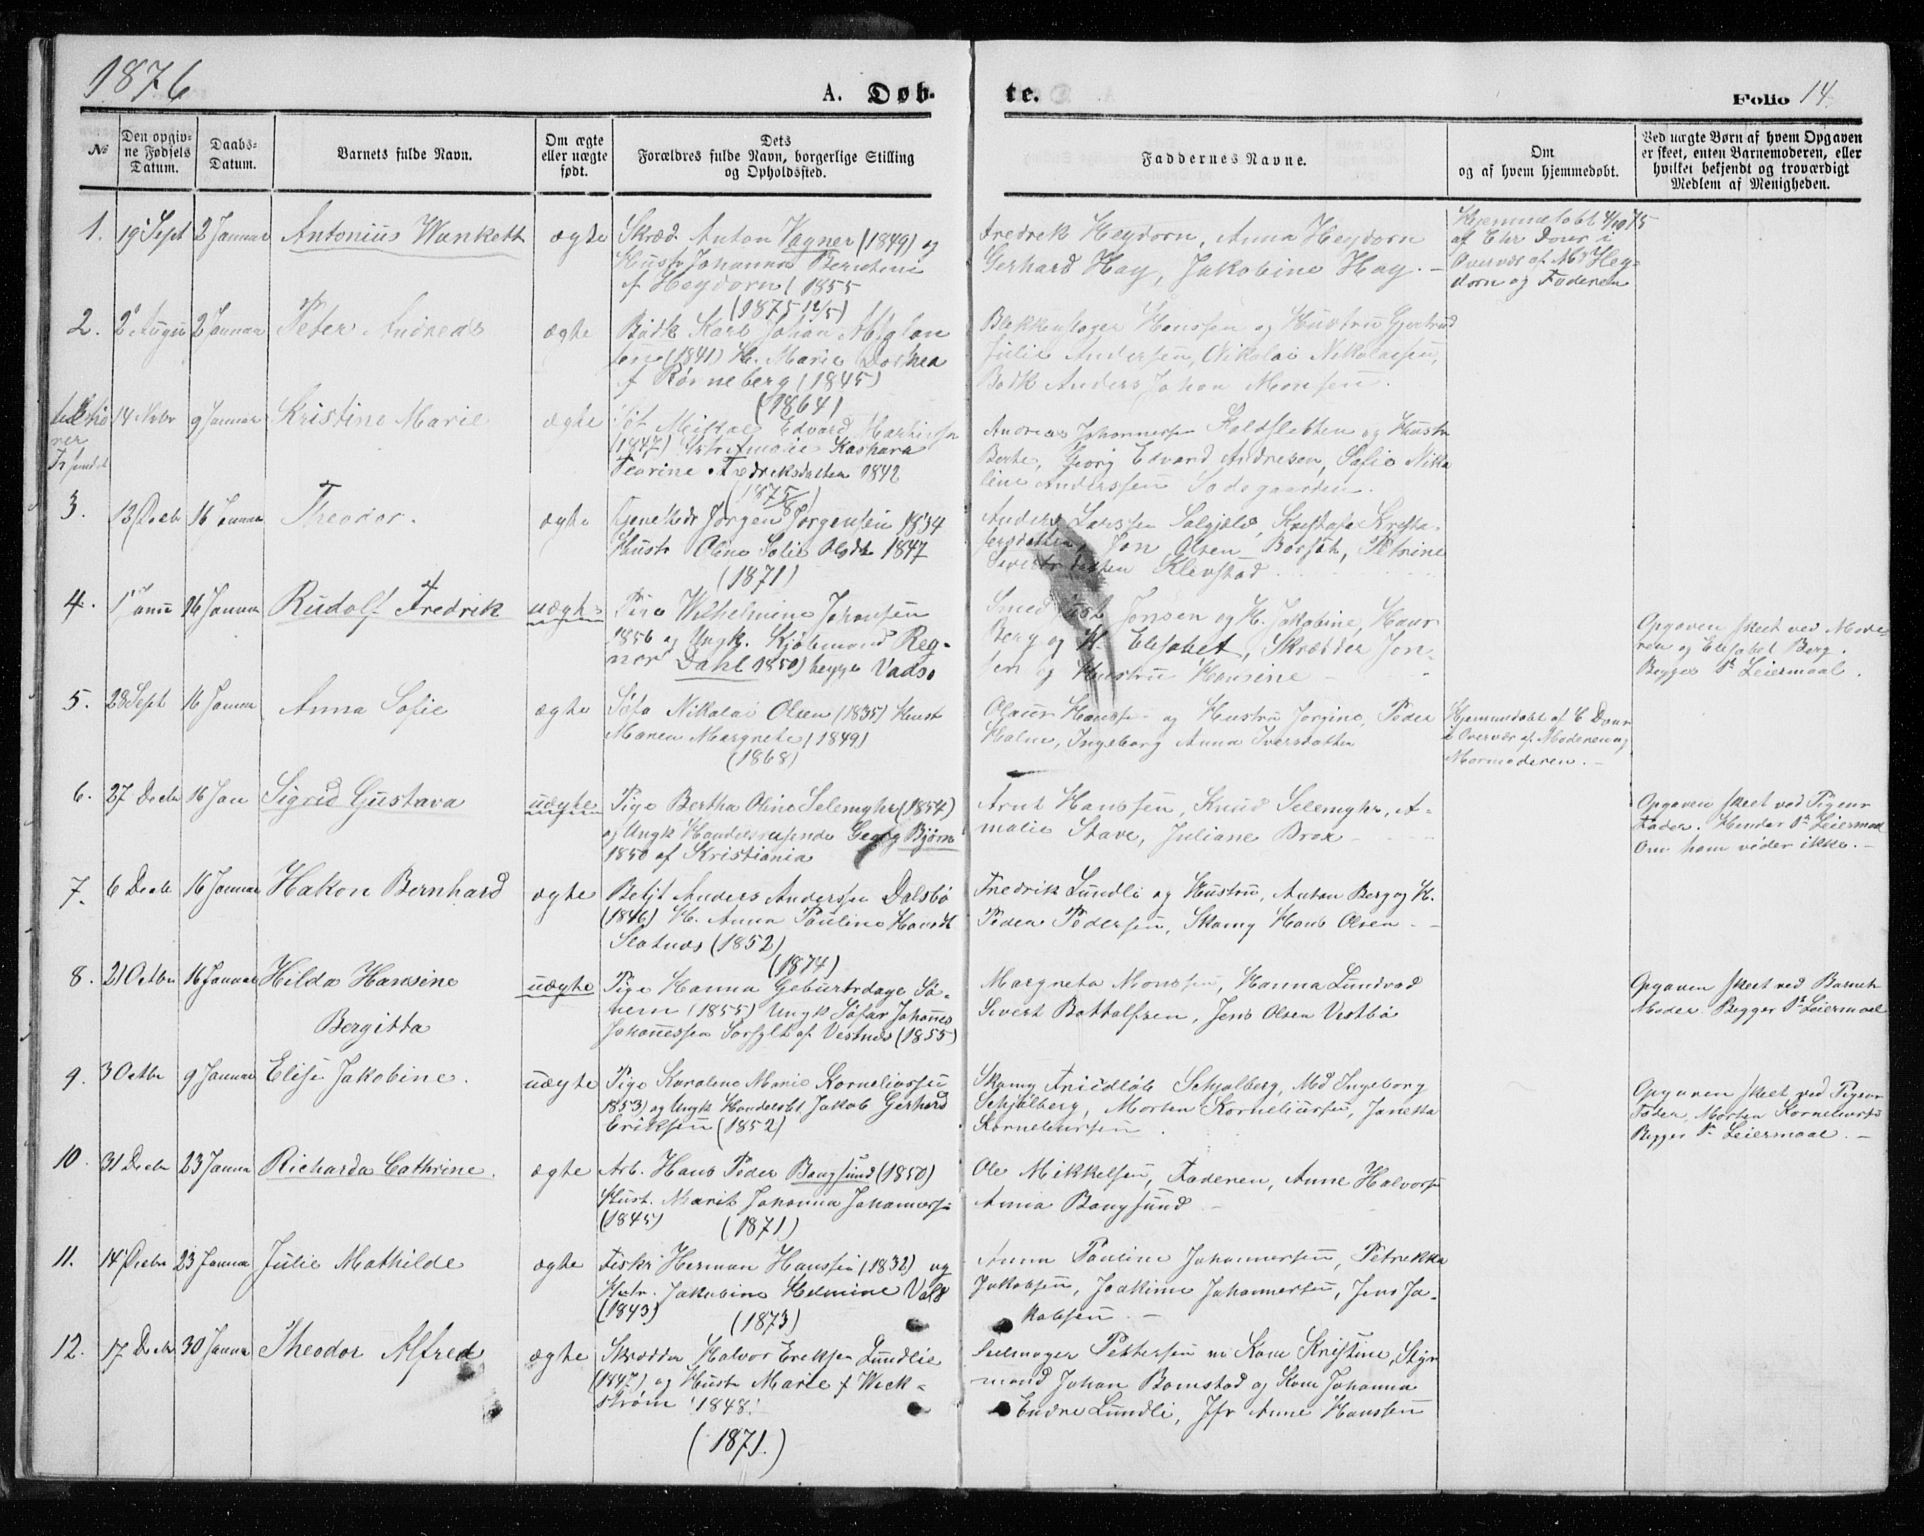 1876
A. Døb-
te.
Folio 14.
№
Den opgiv-
ne Fødsels
Datum.
Daabs-
Datum.
Barnets fulde Navn.
Om ægte
eller uægte
født.
Dets
Forældres fulde Navn, borgerlige Stilling
og Opholdssted.
Faddernes Navne.
Om
og af hvem hjemmedøbt.
Ved uægte Børn af hvem Opgaven
er skeet, enten Barnemoderen, eller
hvilket bekjendt og troværdigt
Medlem af Menigheden.
1. 19 Sept 2 Januar Antonius Wankett ægte Skræd. Anton Vagner (1849) og
Hustr Johanna
f Heydorn (1855
(1875 12/5)
Fredrik Heydorn, Anna Heydorn
Gerhard Hay, Jakobine Hay. –
Hjemmedøbt 4/10 75
af Ehr Dour i
Overvær af Md Hey-
dorn og Faderen
2. 2 Augu 2 Januar Peter Andreas ægte Bødk Karl Johan
(1841) H. Marie Dorthea
f Rørneberg (1845)
(1864)
Blekkenslager Hanssen og Hustru Gjertrud
Julie Andersen, Nikolai Nikolaisen,
Bødk Anders Johan Monsen.
14 Novbr 9 Januar Kristine Marie ægte Edvard
(1847) Amalie Kashara
Fredriksdatter 1842
(1875
Andreas Johannesen og Hustr
Berte, Georg Edvard Andresen, Sofie Nika
line Anderssen
3. 13 Decbr 16 Januar Theodor. ægte Jørgen Jørgensen 1834
Hustr Oline Sofie Olsdt 1847
(1871)
Anders Larssen
Jon Olsen
Klevstad
4. 1 Janu 16 Januar Rudolf Fredrik uægte Pige Wilhelmine Johansen
1856 og Ungk. Kjøbmand Reg-
nor Dahl 1850) begge Vadsø
Smed Jonsen og H. Jakobine, Hans
Berg og H. Elisabet, Skrædder Jon-
sen og Hustru Hansine –
Opgaven skeet ved Mode-
ren og Elisabet Berg.
Begges 1st Leiermaal.
5. 28 Sept 16 Januar Anna Sofie ægte Nikolai Olsen (1835) Hust
Maren Margrete (1849)
(1868)
Hanssen og Hustru Jorgine, Peder
Holm, Ingeborg Anna Iversdatter
Hjemmedøbt af E Dour
i Overvær af Moderen og
Mormoderen. –
6. 27 Decbr 16 Jan Sigrid Gustava uægte Pige Bertha Oline Selemyhr (1854)
og Ungk Handelsreisende Georg Bjørn
1850 af Kristiania
Arnt Hanssen, Knud Selemyhr, A-
malie Stave, Juliane Brox
Opgaven skeet ved Pigens
Fader. Hendes 1st Leiermaal
Om ham vides ikke. –
7. 6 Decbr 16 Januar Hakon Bernhard ægte Betjt Anders Anderssen Dalsbø
(1846) H. Anna Pauline Hansdt
Slatnes (1852)
(1874)
Fredrik Lundli og Hustru, Anton Berg og H.
Peder Pedersen, Skomg Hans Olsen –
8. 21 Octbr 16 Januar Hilda Hansine
Bergitta
uægte Pige Hanna Geburtsdage Sø-
hem (1855) Ungk Søfar Johanes
Johanessen Sorfylt af Vestnes (1855)
Margreta Monssen, Hanna Lundvad
Sivert Bottolfsen, Jens Olsen Vestbø
Opgaven skeet ved Barnets
Moder. Begges 1st Leiermaal
9. 3 Octbr 9 Januar Elise Jakobine. uægte Pige Karoline Marie Korneliussen
1853) og Ungk Handelsbt Jakob Gerhard
Eriksen (1852)
Skomg Schjølberg, Md Ingeborg
Schjølberg, Morten Korneliussen, Janetta
Korneliussen.
Opgaven skeet ved Pigens
Fader, Morten Korneliuss
Begges 1st Leiermaal. –
10. 31 Decbr 23 Janua Richarda Cathrine. ægte Arb. Hans Peder Bangsund (1850)
Hust. Marit Johanna Johannes
(1845) (1871)
Ole Mikkelsen, Faderen, Anne Halvors
Anna Bangsund –
11. 14 Decbr 23 Janua Julie Mathilde ægte Fiskr Herman Hanssen (1832) og
Hstr. Jakobine Helmine Vold
(1843) (1873)
Anna Pauline Johannessen, Petrikka
Jakobsen, Joakime Johannessen, Jens Ja-
kobsen. –
12. 17 Decbr 30 Janua Theodor Alfred ægte Skrædder Halvor Eriksen Lundlie
(1847) og Hustr Marie f Wick-
strøm 1848.
(1871.)
Seilmager Pettersen m Kone Kristine, Styr
mand Johan Bomstad og Kone Johanna
Endre Lundli, Jfr Anne Hanssen